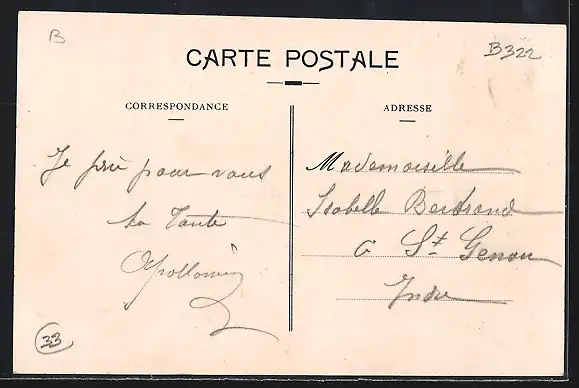 B
B322
CARTE POSTALE
CORRESPONDANCE
ADRESSE
Je prie pour vous
ta Tante
Apollonie
33
Mademoiselle
Isabelle Bertrand
à St Genou
Indre